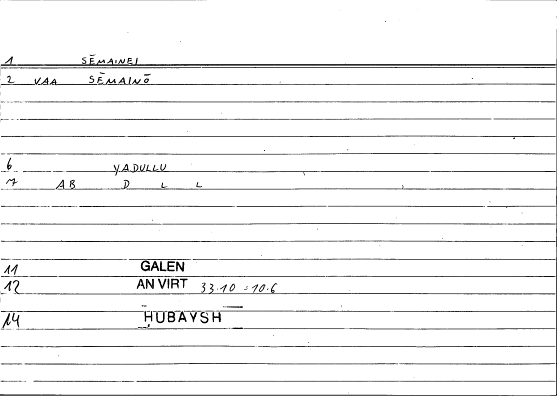 1 SĒMAINEI
2 VAA SĒMAINŌ
6 YADULLU
7 AB D L L
11 GALEN
12 AN VIRT 33.10 = 10.6
14 ḤUBAYSH